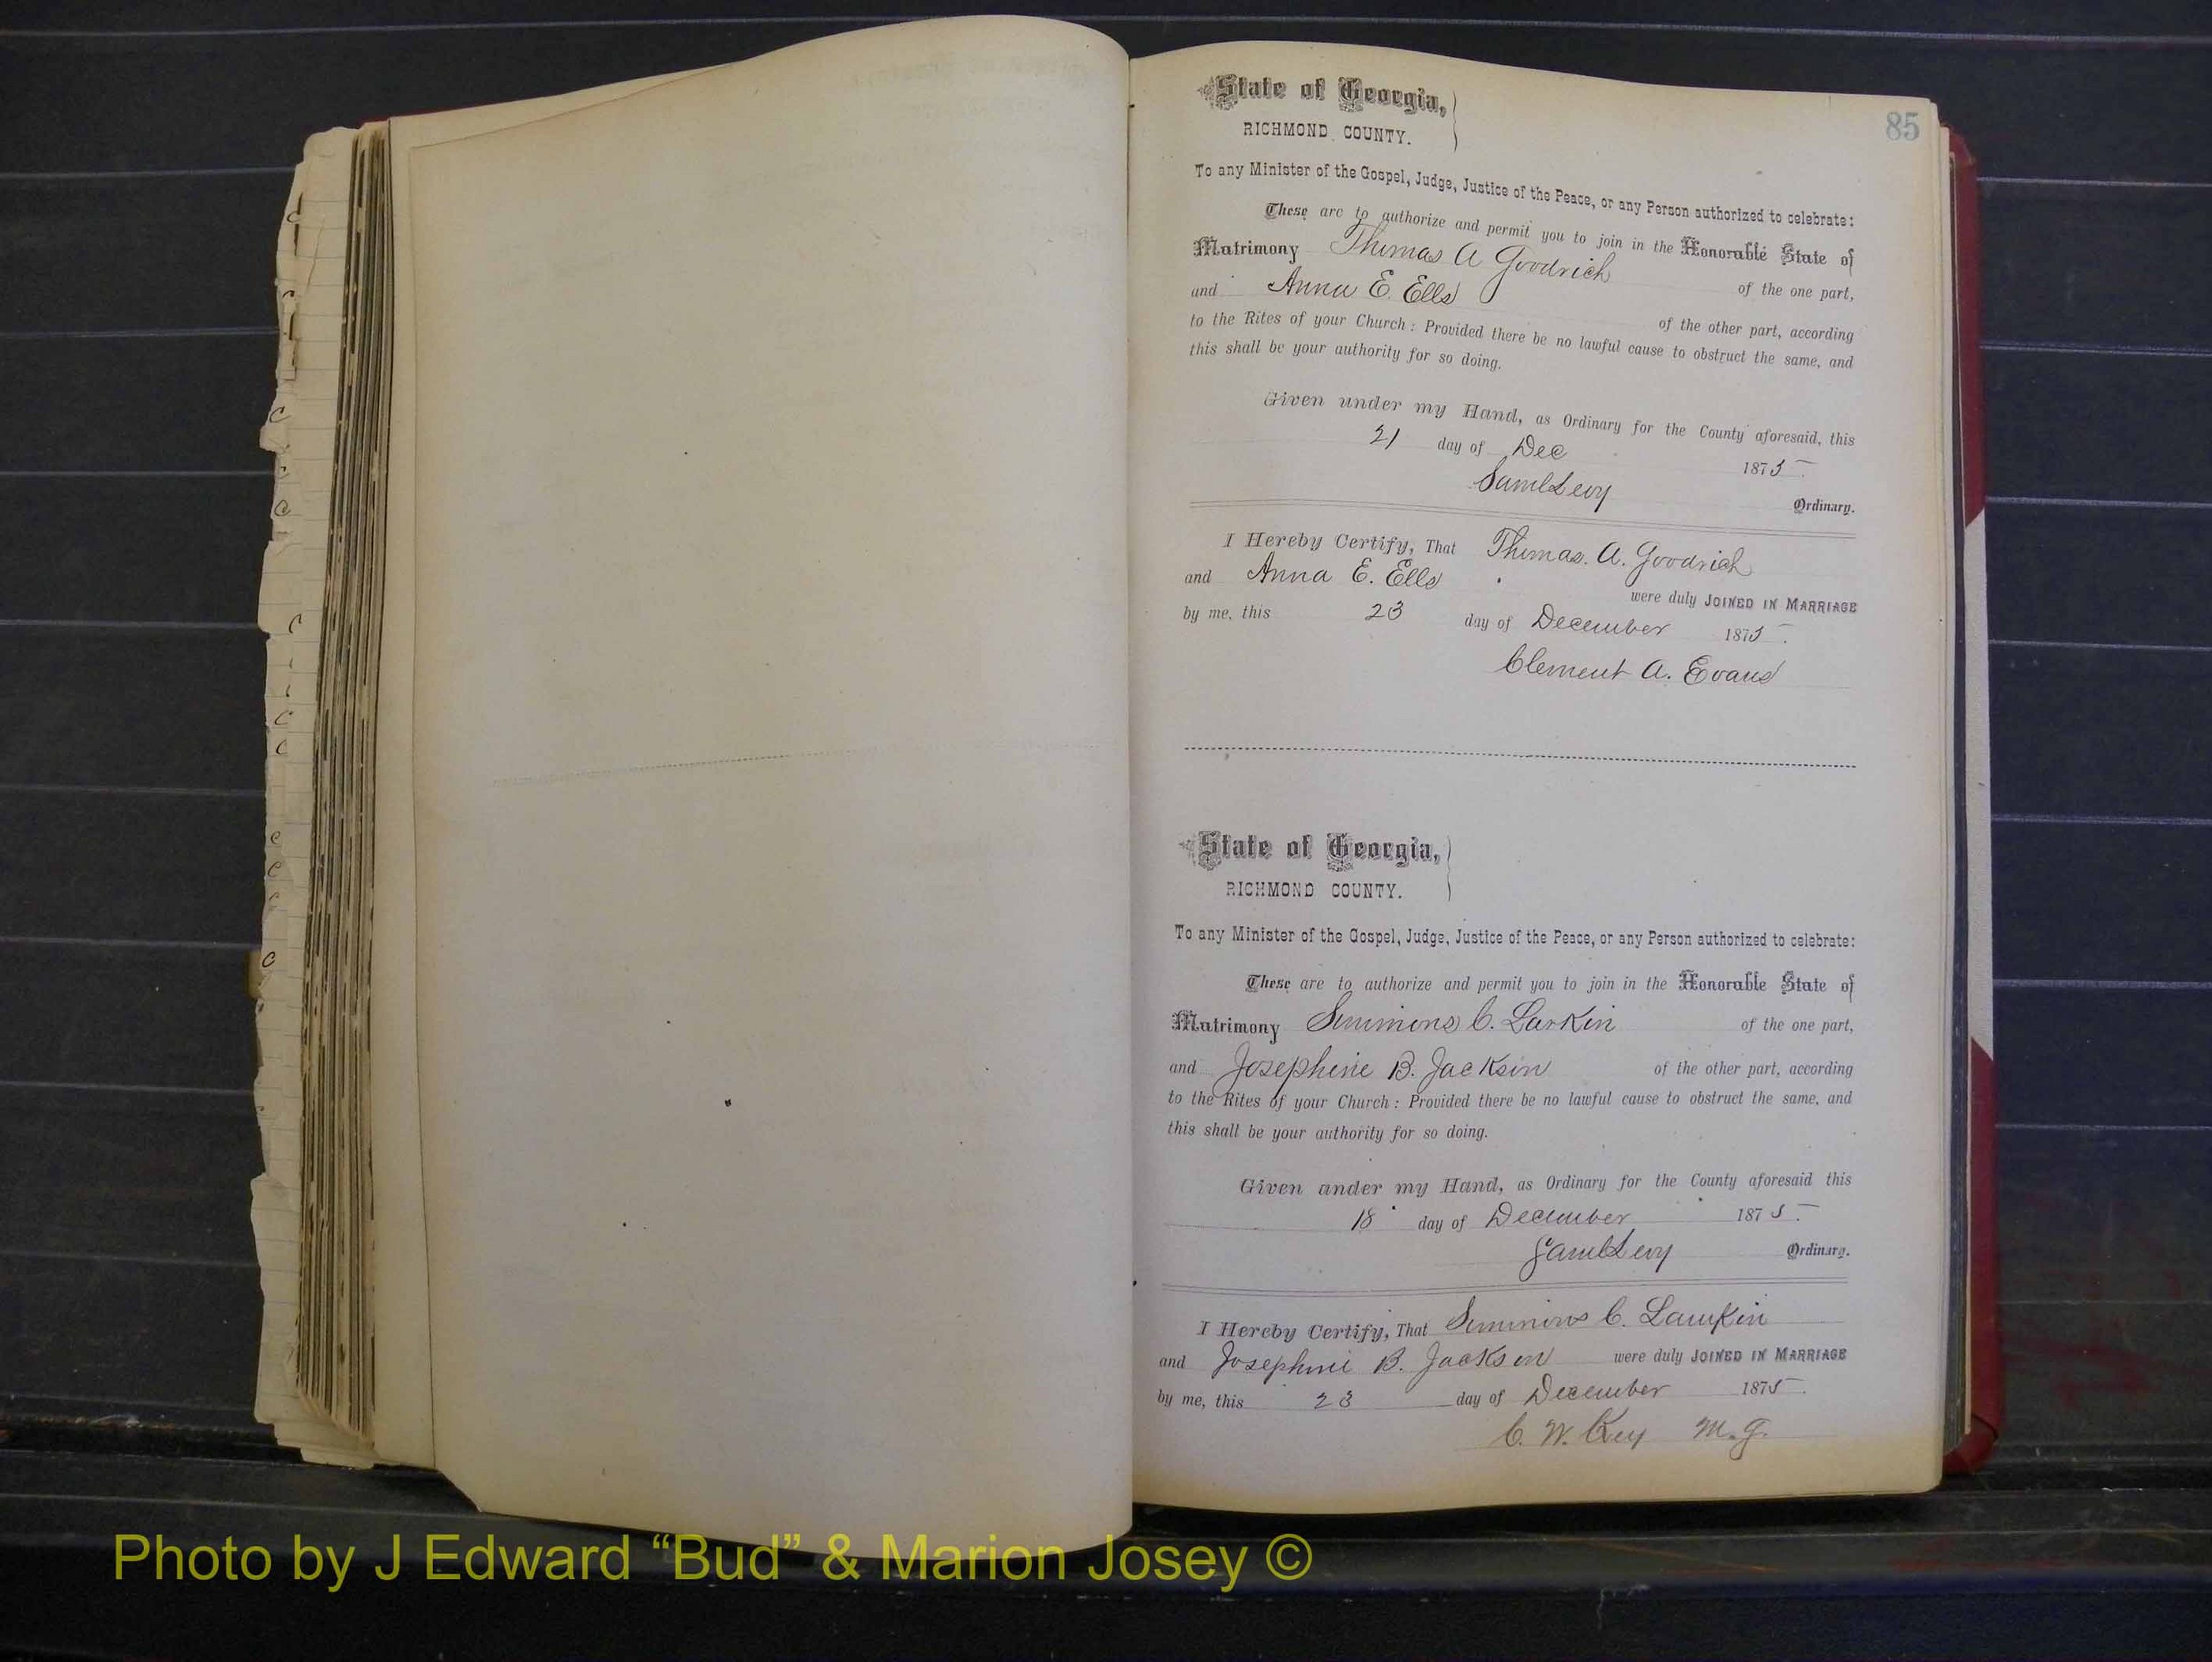 85
State of Georgia,
RICHMOND COUNTY.
To any Minister of the Gospel, Judge, Justice of the Peace, or any Person authorized to celebrate:
These are to authorize and permit you to join in the Honorable State of
Matrimony Thomas A Goodrich of the one part,
and Anna E. Ells of the other part, according
to the Rites of your Church: Provided there be no lawful cause to obstruct the same, and
this shall be your authority for so doing.
Given under my Hand, as Ordinary for the County aforesaid, this
21 day of Dec 1875.
Saml Levy Ordinary.
I Hereby Certify, That Thomas. A. Goodrich
and Anna E. Ells were duly JOINED IN MARRIAGE
by me, this 23 day of December 1875.
Clement A. Evans
State of Georgia,
RICHMOND COUNTY.
To any Minister of the Gospel, Judge, Justice of the Peace, or any Person authorized to celebrate:
These are to authorize and permit you to join in the Honorable State of
Matrimony Simmons C. Larkin of the one part,
and Josephine B. Jackson of the other part, according
to the Rites of your Church: Provided there be no lawful cause to obstruct the same, and
this shall be your authority for so doing.
Given under my Hand, as Ordinary for the County aforesaid this
18 day of December 1875.
Saml Levy Ordinary.
I Hereby Certify, That Simmons C. Lamkin
and Josephine B. Jackson were duly JOINED IN MARRIAGE
by me, this 23 day of December 1875.
C. W. Key M. G.
Photo by J Edward “Bud” & Marion Josey ©